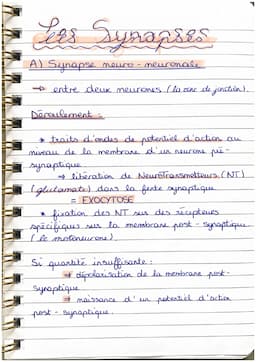 Les Synapses
A) Synapse neuro-neuronale
→ entre deux neurones (la zone de jonction).
Déroulement :
* traits d'ondes de potentiel d'action au
niveau de la membrane d'un neurone pré-
synaptique
→ libération de Neurotransmetteurs (NT)
(glutamate) dans la fente synaptique
= EXOCYTOSE
* fixation des NT sur des récepteurs
spécifiques sur la membrane post-synaptique
(le motoneurone).
Si quantité insuffisante :
→ dépolarisation de la membrane post-
synaptique
→ naissance d'un potentiel d'action
post-synaptique.